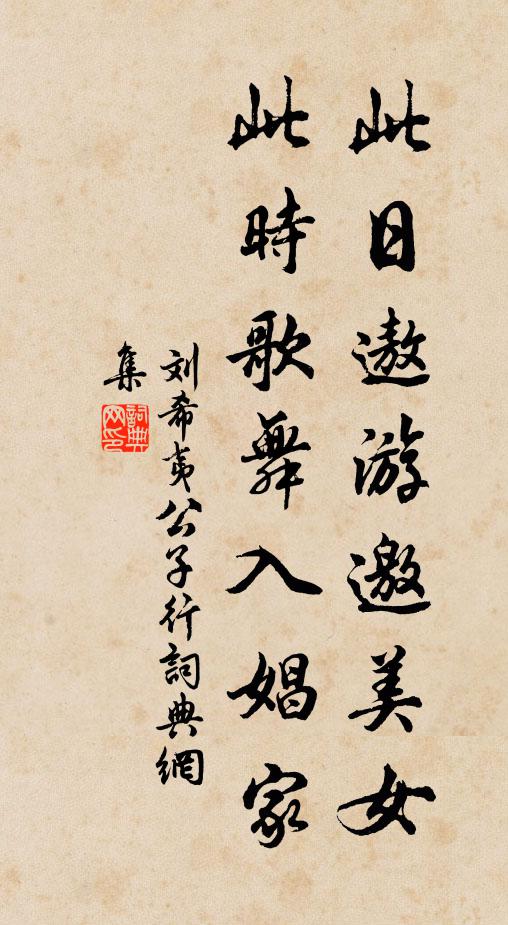 此日遨游邀美女
此時歌舞入娼家
刘希夷公子行詞典網
集
詞典网印